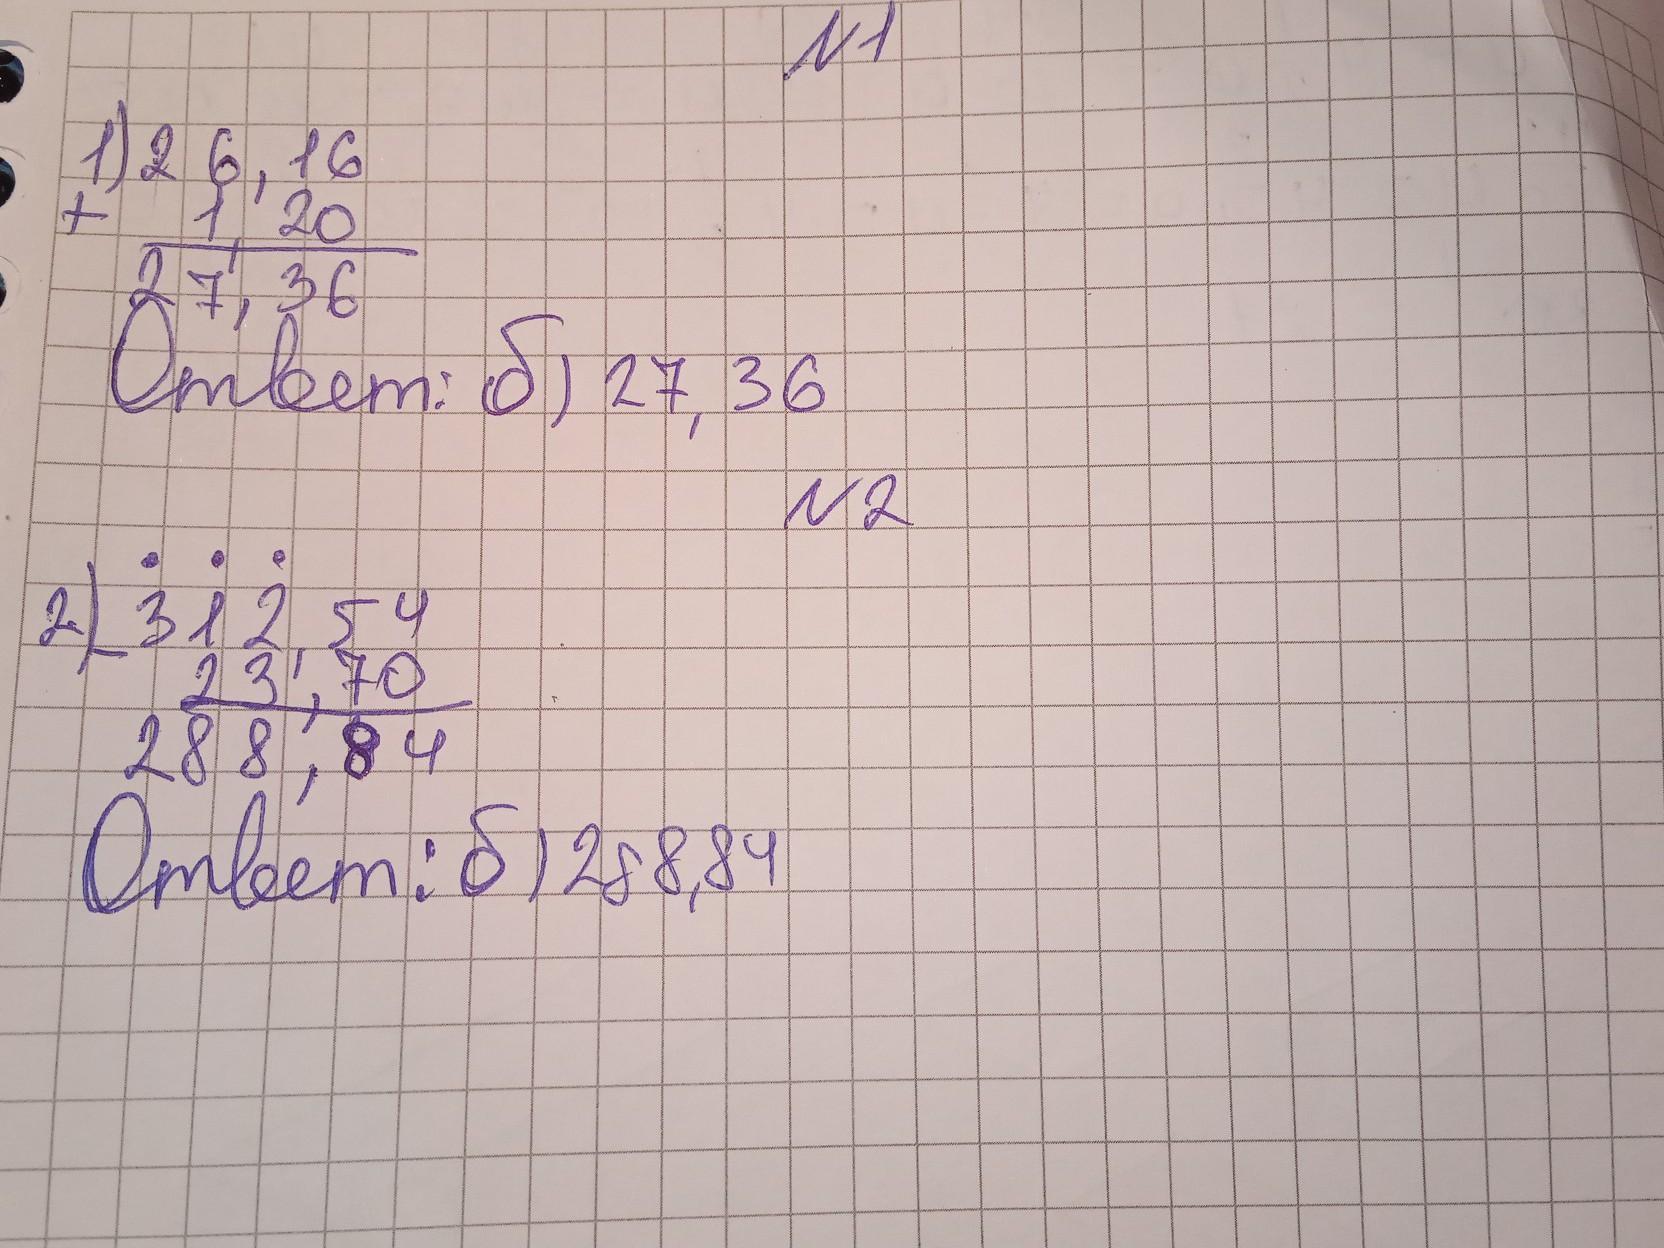 N1
1) 26,16
+ 1,20
27,36
Ответ: б) 27,36
N2
2) _ 312,54
23,70
288,84
Ответ: б) 288,84